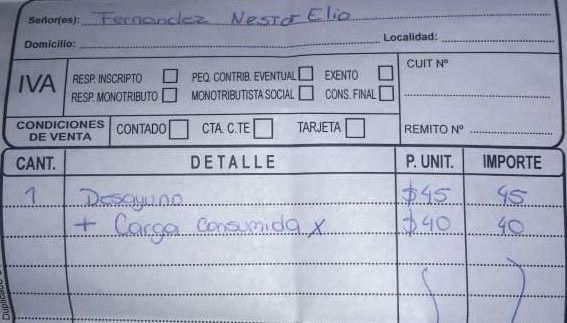 Señor(es): Fernandez Nestor Elio
Domicilio: Localidad:
IVA
RESP. INSCRIPTO PEQ. CONTRIB. EVENTUAL EXENTO
RESP. MONOTRIBUTO MONOTRIBUTISTA SOCIAL CONS. FINAL
CUIT Nº
CONDICIONES DE VENTA CONTADO CTA. C.TE TARJETA REMITO Nº
CANT. DETALLE P. UNIT. IMPORTE
1 Desayuno $45 45
+ Carga Consumida x $40 40
Duplicado